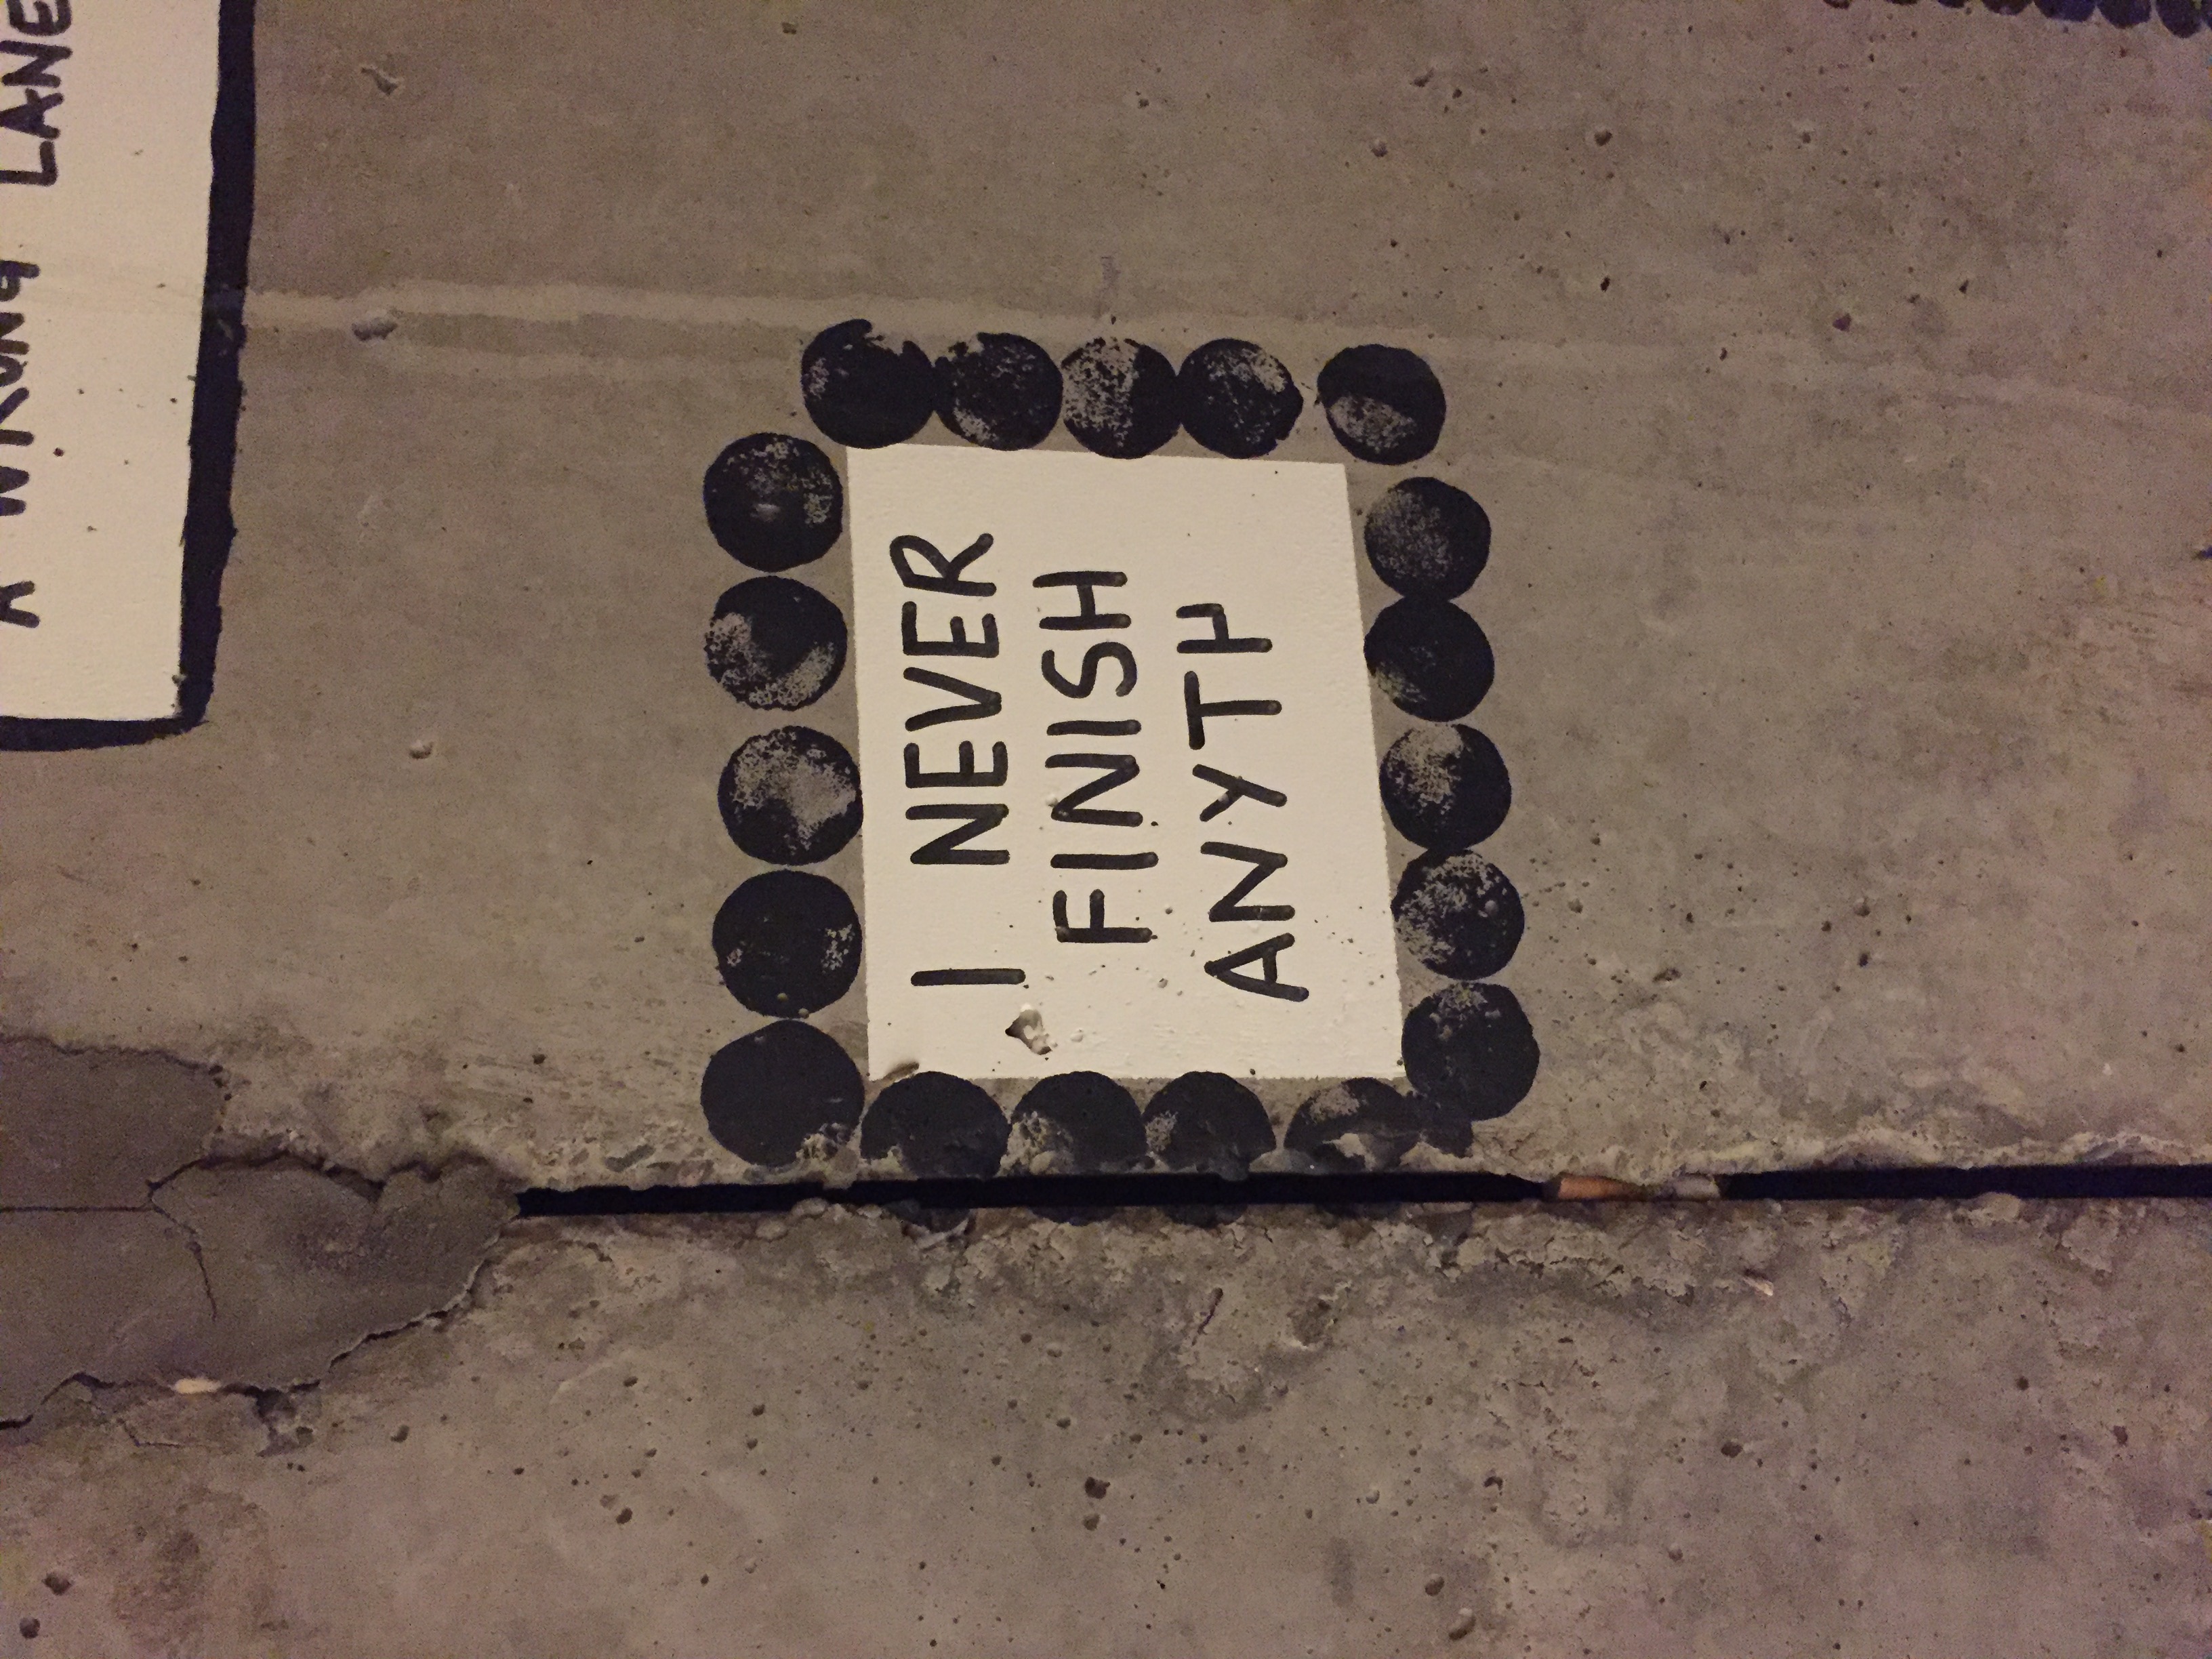 A WRONG LANE
I NEVER
FINISH
ANYTH